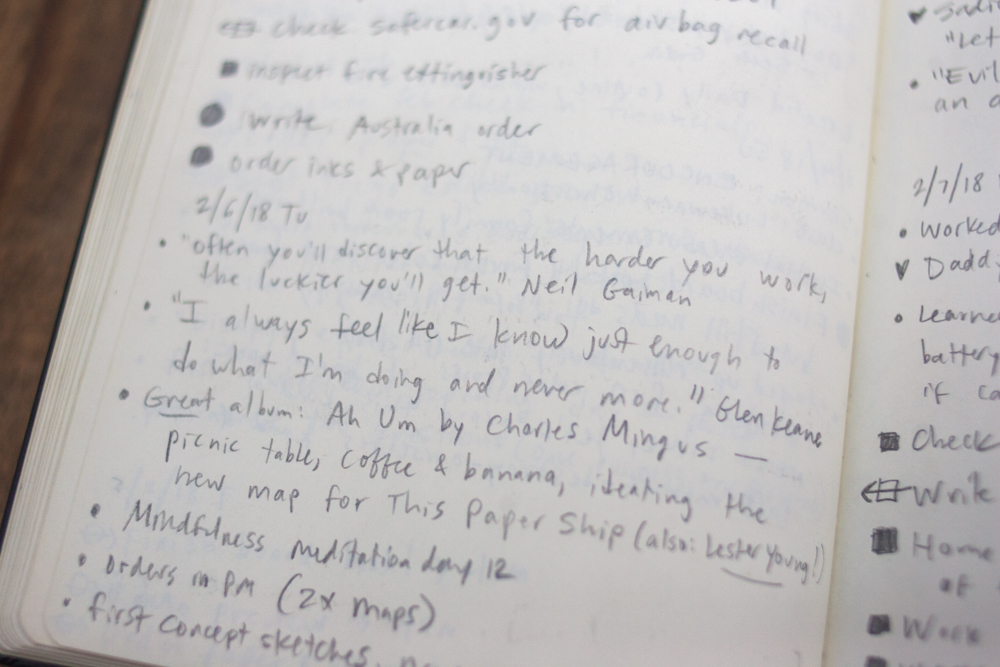 check safercar.gov for airbag recall
inspect fire extinguisher
write Australia order
order inks & paper
2/6/18 Tu
• "often you'll discover that the harder you work,
the luckier you'll get." Neil Gaiman
• "I always feel like I know just enough to
do what I'm doing and never more." Glen Keane
• Great album: Ah Um by Charles Mingus —
picnic table, coffee & banana, ideating the
new map for This Paper Ship (also: Lester Young!)
• Mindfulness meditation day 12
• orders in pm (2x maps)
• first concept sketches,
"Let
• "Evil
an
2/7/18
• Worked
Dadd
• Learned
battery
if
Check
Write
Home
of
Work